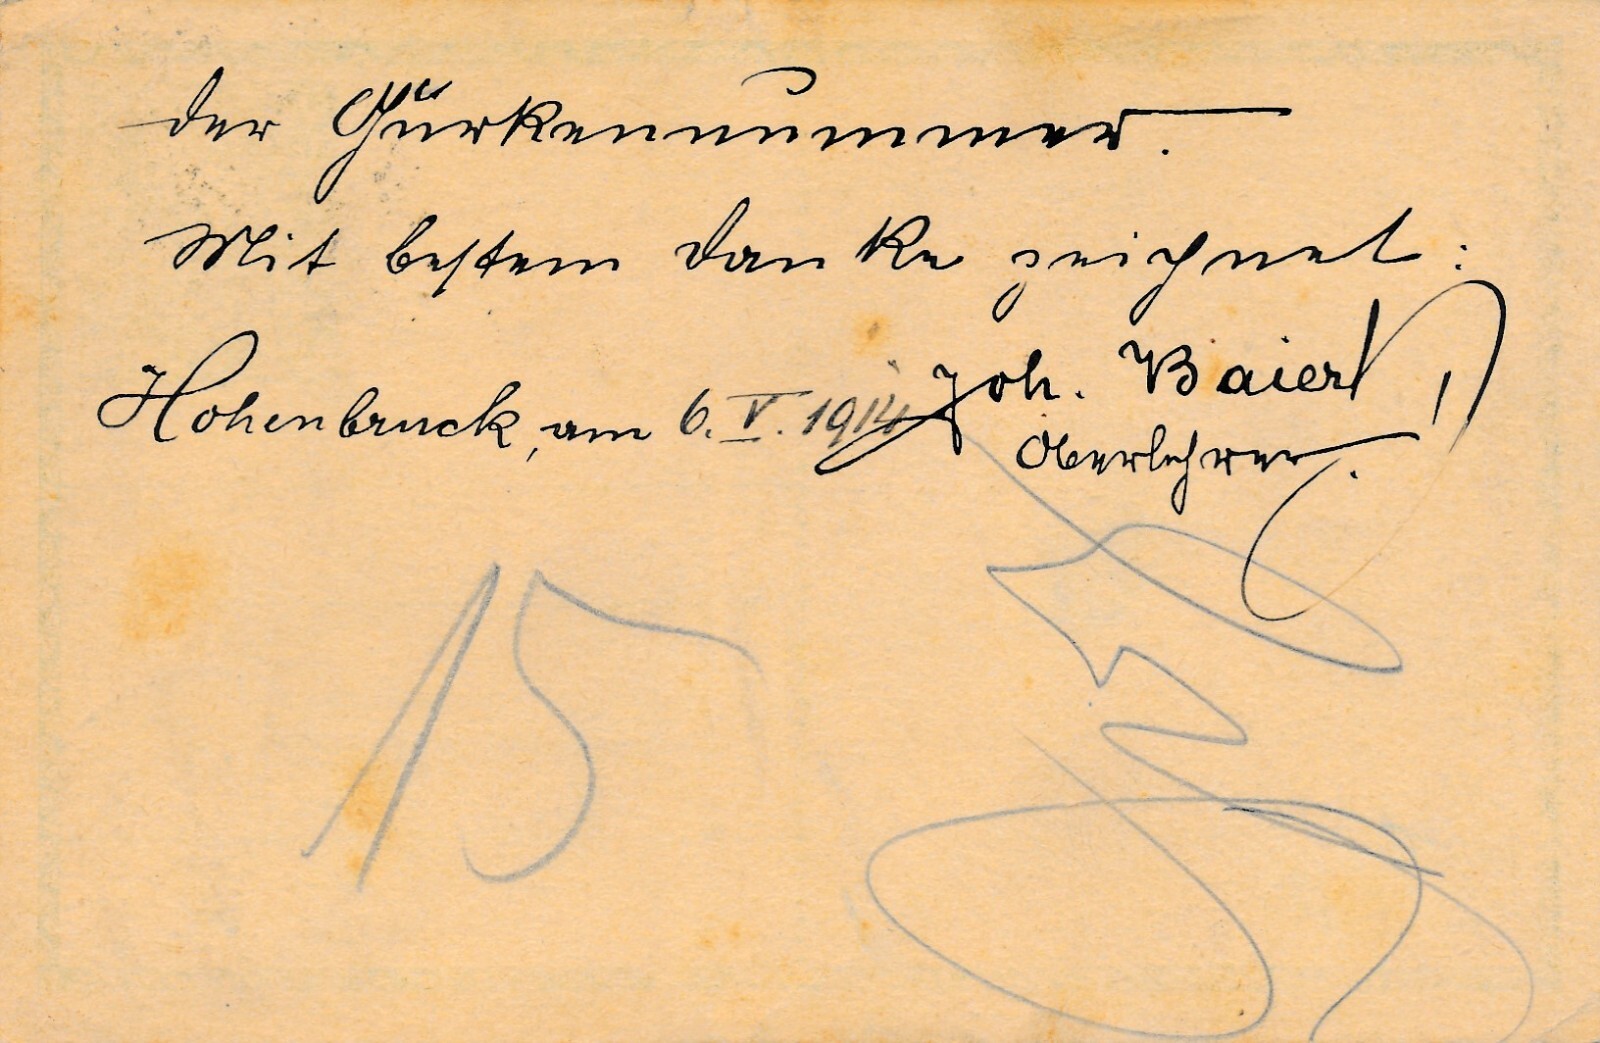 der Gurkennummer.
Mit bestem Danke zeichnet:
Joh. Baierl
Hohenbruck, am 6. V. 1914
Oberlehrer.
15